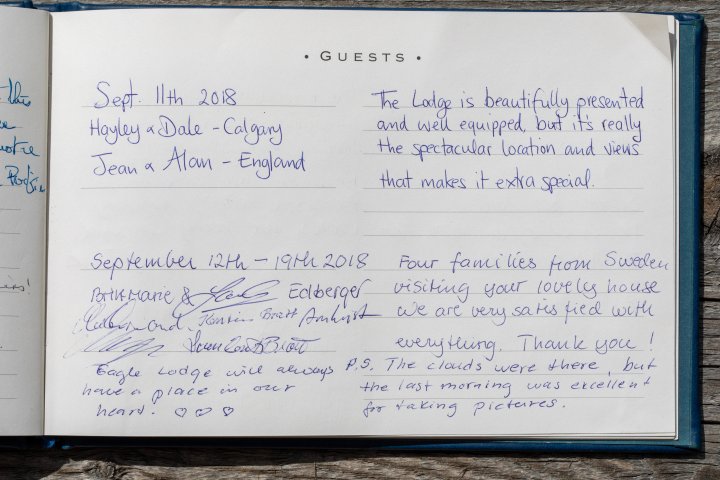 • GUESTS •
Sept. 11th 2018
Hayley & Dale - Calgary
Jean & Alan - England
The Lodge is beautifully presented
and well equipped, but it's really
the spectacular location and views
that makes it extra special.
September 12th - 19th 2018
Britt-Marie & Edberger
and Kerstin Bratt
Four families from Sweden
visiting your lovely house
we are very satisfied with
everything. Thank you!
Eagle Lodge will always
have a place in our
heart. ♡ ♡ ♡
P.S. The clouds were there, but
the last morning was excellent
for taking pictures.